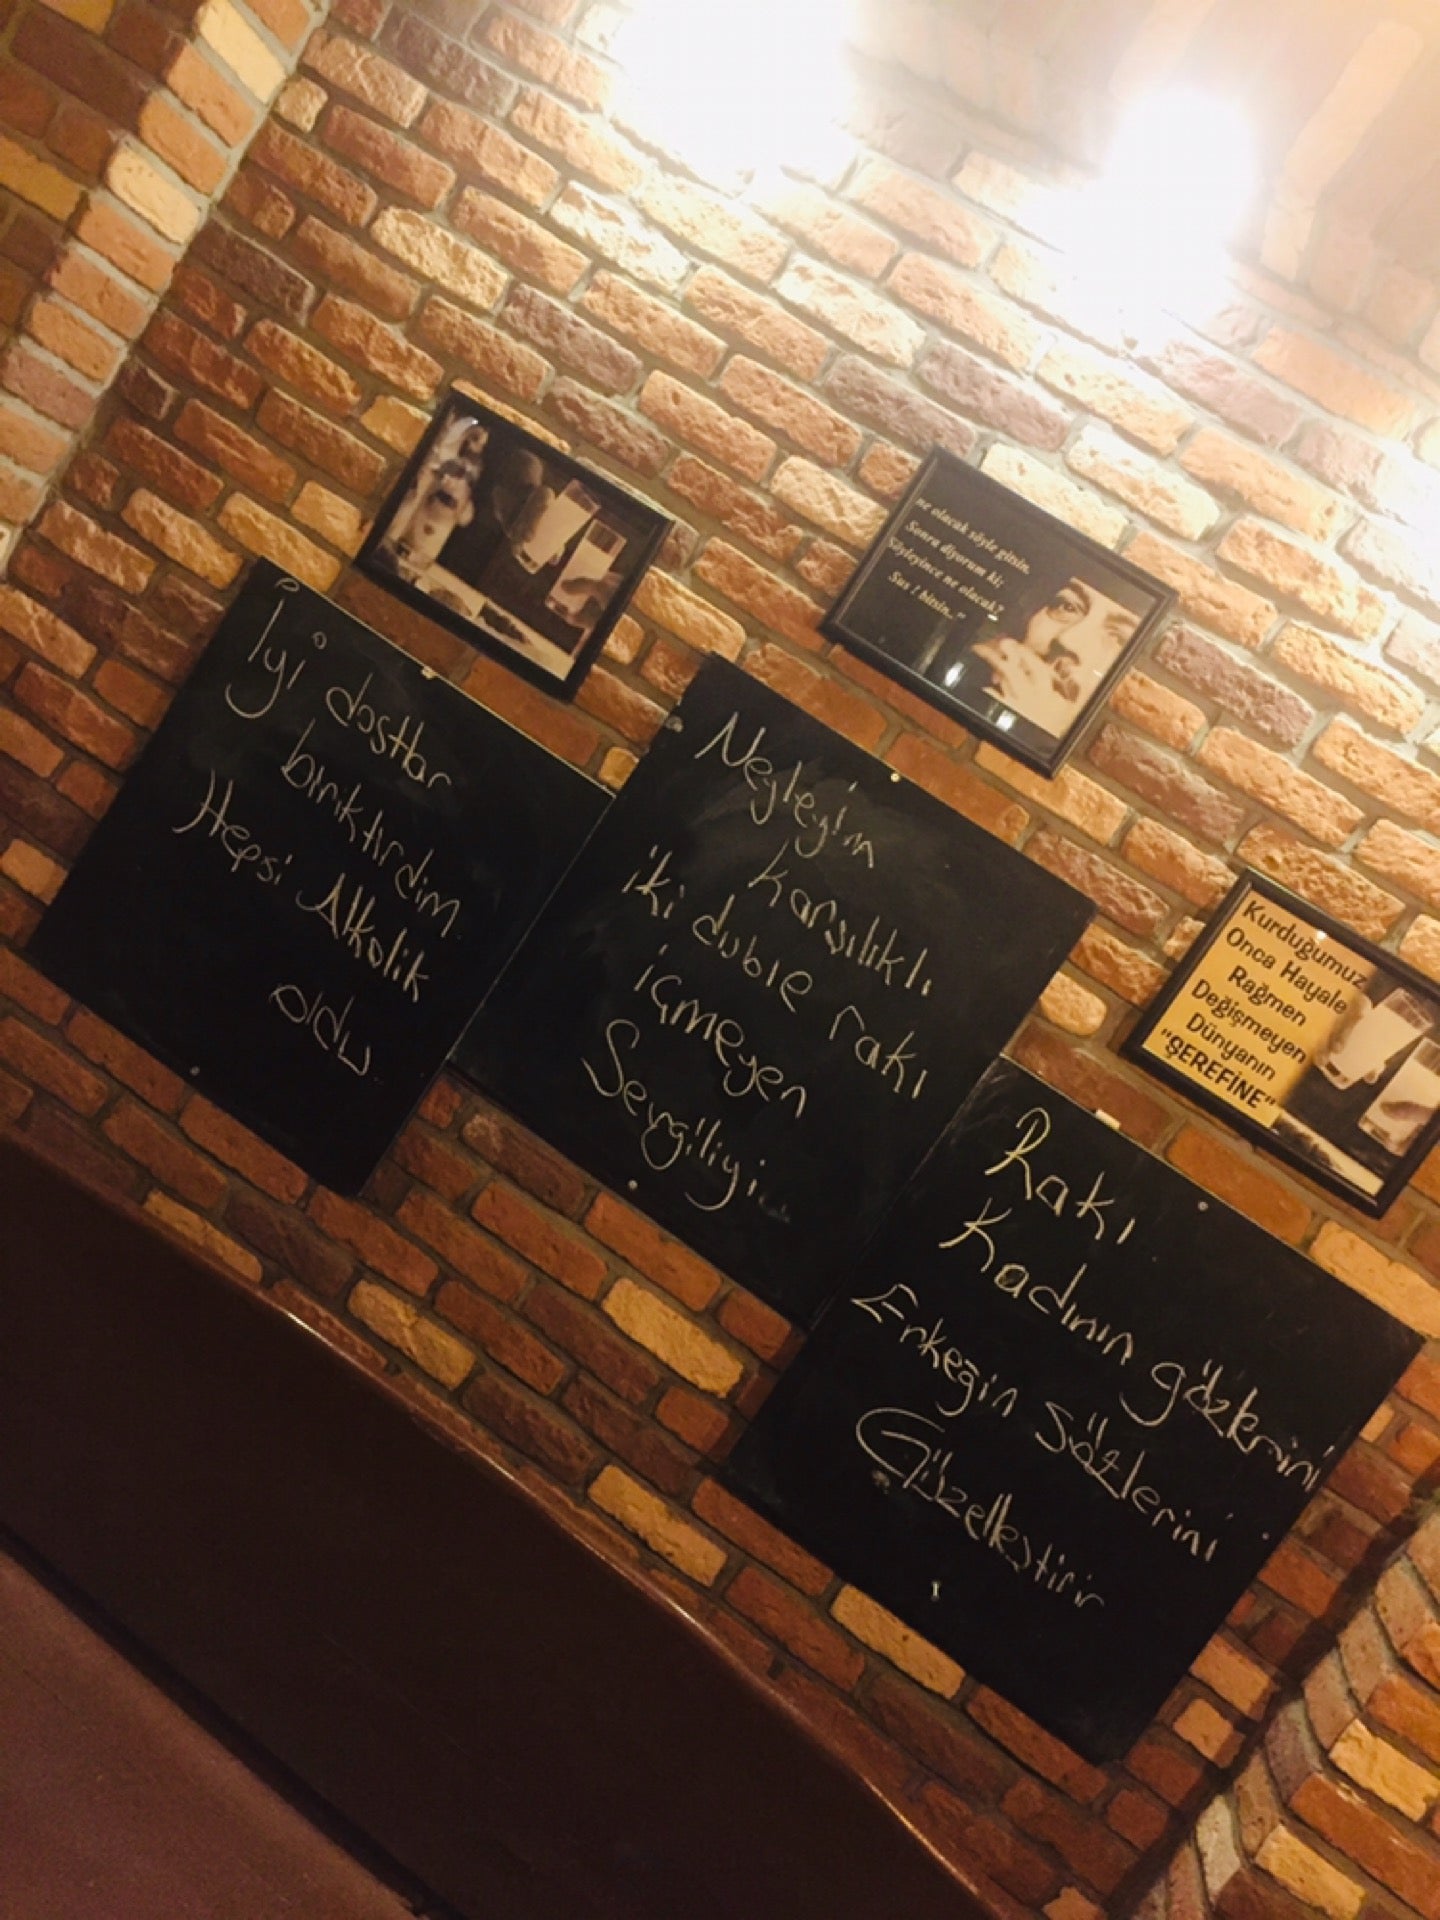 "ne olacak söyle gitsin.
Sonra diyorum ki;
Söyleyince ne olacak?
Sus ! bitsin.."
İyi dostlar
biriktirdim
Hepsi Alkolik
oldu
Neyleyim
karşılıklı
iki duble rakı
içmeyen
Sevgiliyi
Kurduğumuz
Onca Hayale
Rağmen
Değişmeyen
Dünyanın
"ŞEREFİNE"
Rakı
Kadının gözlerini
Erkeğin sözlerini
Güzelleştirir